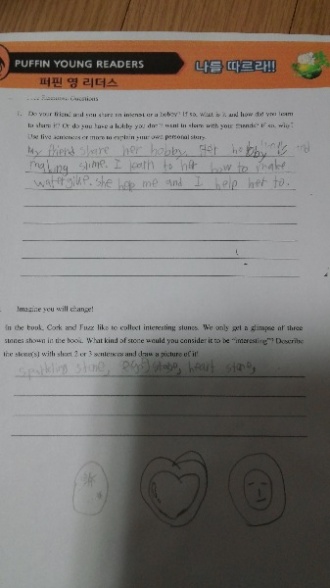 PUFFIN YOUNG READERS
나를 따르라!!
퍼핀 영 리더스
Questions
Do your friend and you share an interest or a hobby? If so, what is it and how did you learn
to share it? Or do you have a hobby you don't want to share with your friends? If so, why?
Use five sentences or more to explain your own personal story.
My friend share her hobby. Her hobby is
making slime. I learn to her how to make
. She help me and I help her to.
Imagine you will change!
In the book, Cork and Fuzz like to collect interesting stones. We only get a glimpse of three
stones shown in the book. What kind of stone would you consider to be "interesting"? Describe
the stone(s) with short 2 or 3 sentences and draw a picture of it!
sparkling stone, stone, heart stone,